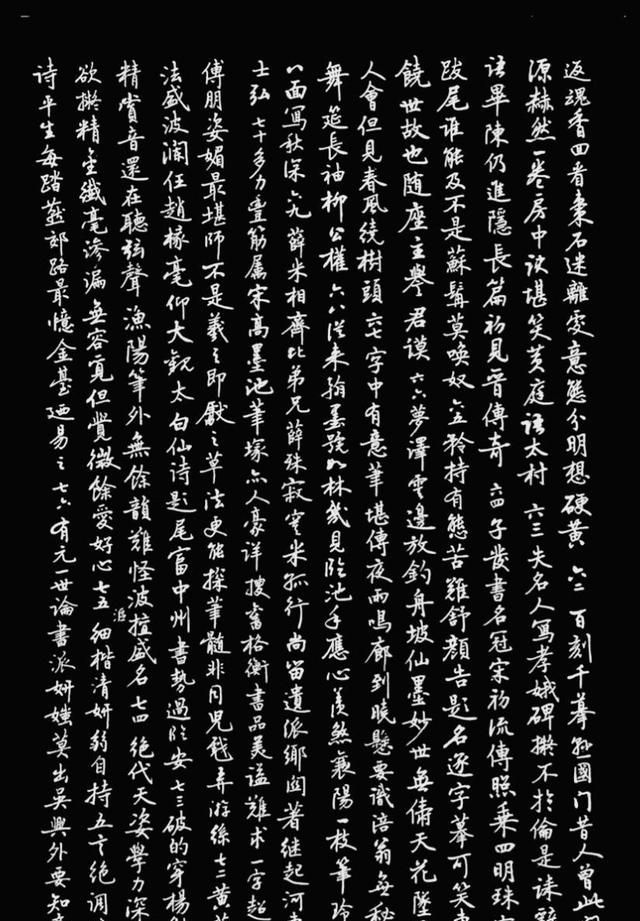 返魂香四看枣石迷離处意態分明想硬黄 六二 百刻千摹孙國门昔人曾此
源赫然一卷房中诀堪笑黄庭语太村 六三 失名人写孝娥碑拟不於倫是诛
语畢陳仍進隱长篇初見晋傳奇 六四 子发書名冠宋初流傳照乘四明珠
跋尾谁能及不是蘇髯莫唤奴 六五 矜持有態苦難舒顏告題名逐字摹可笑
饒世故也随座主譽君谟 六六 夢澤雲邊放釣舟坡仙墨妙世無儔天花墜
人會但見春風绕樹頭 六七 字中有意筆堪傳夜雨鸣廊到曉懸要識涪翁無秘
舞筵長袖柳公權 六八 从来翰墨號如林幾見臨池手應心羡煞襄陽一枝筆玲
八面写秋深 六九 薛米相齊比弟兄薛殊寂寞米孤行尚留遺派鄉闾著继起河
士弘 七十 多力豊筋属宋高墨池筆塚亦人豪详搜旁格衡書品美谥難求一字超
傅朋姿媚最堪師不是羲之即獻之草法更能探筆髓非同兒戲弄游絲 七二 黄華
法盛波澜任趙椽毫仰大觀太白仙诗題尾富中州書勢過临安 七三 破的穿楊
精賞音還在聽弦聲漁陽筆外無餘韻難怪波旋盛名 七四 绝代天姿學力深
欲拟精金纖毫滲漏無容覓但覺微餘愛好心 七五 細楷清妍弱自持五言绝调
诗平生每踏燕郊路最憶金臺迺易之 七六 有元一世論書派妍媸莫出吴興外要知